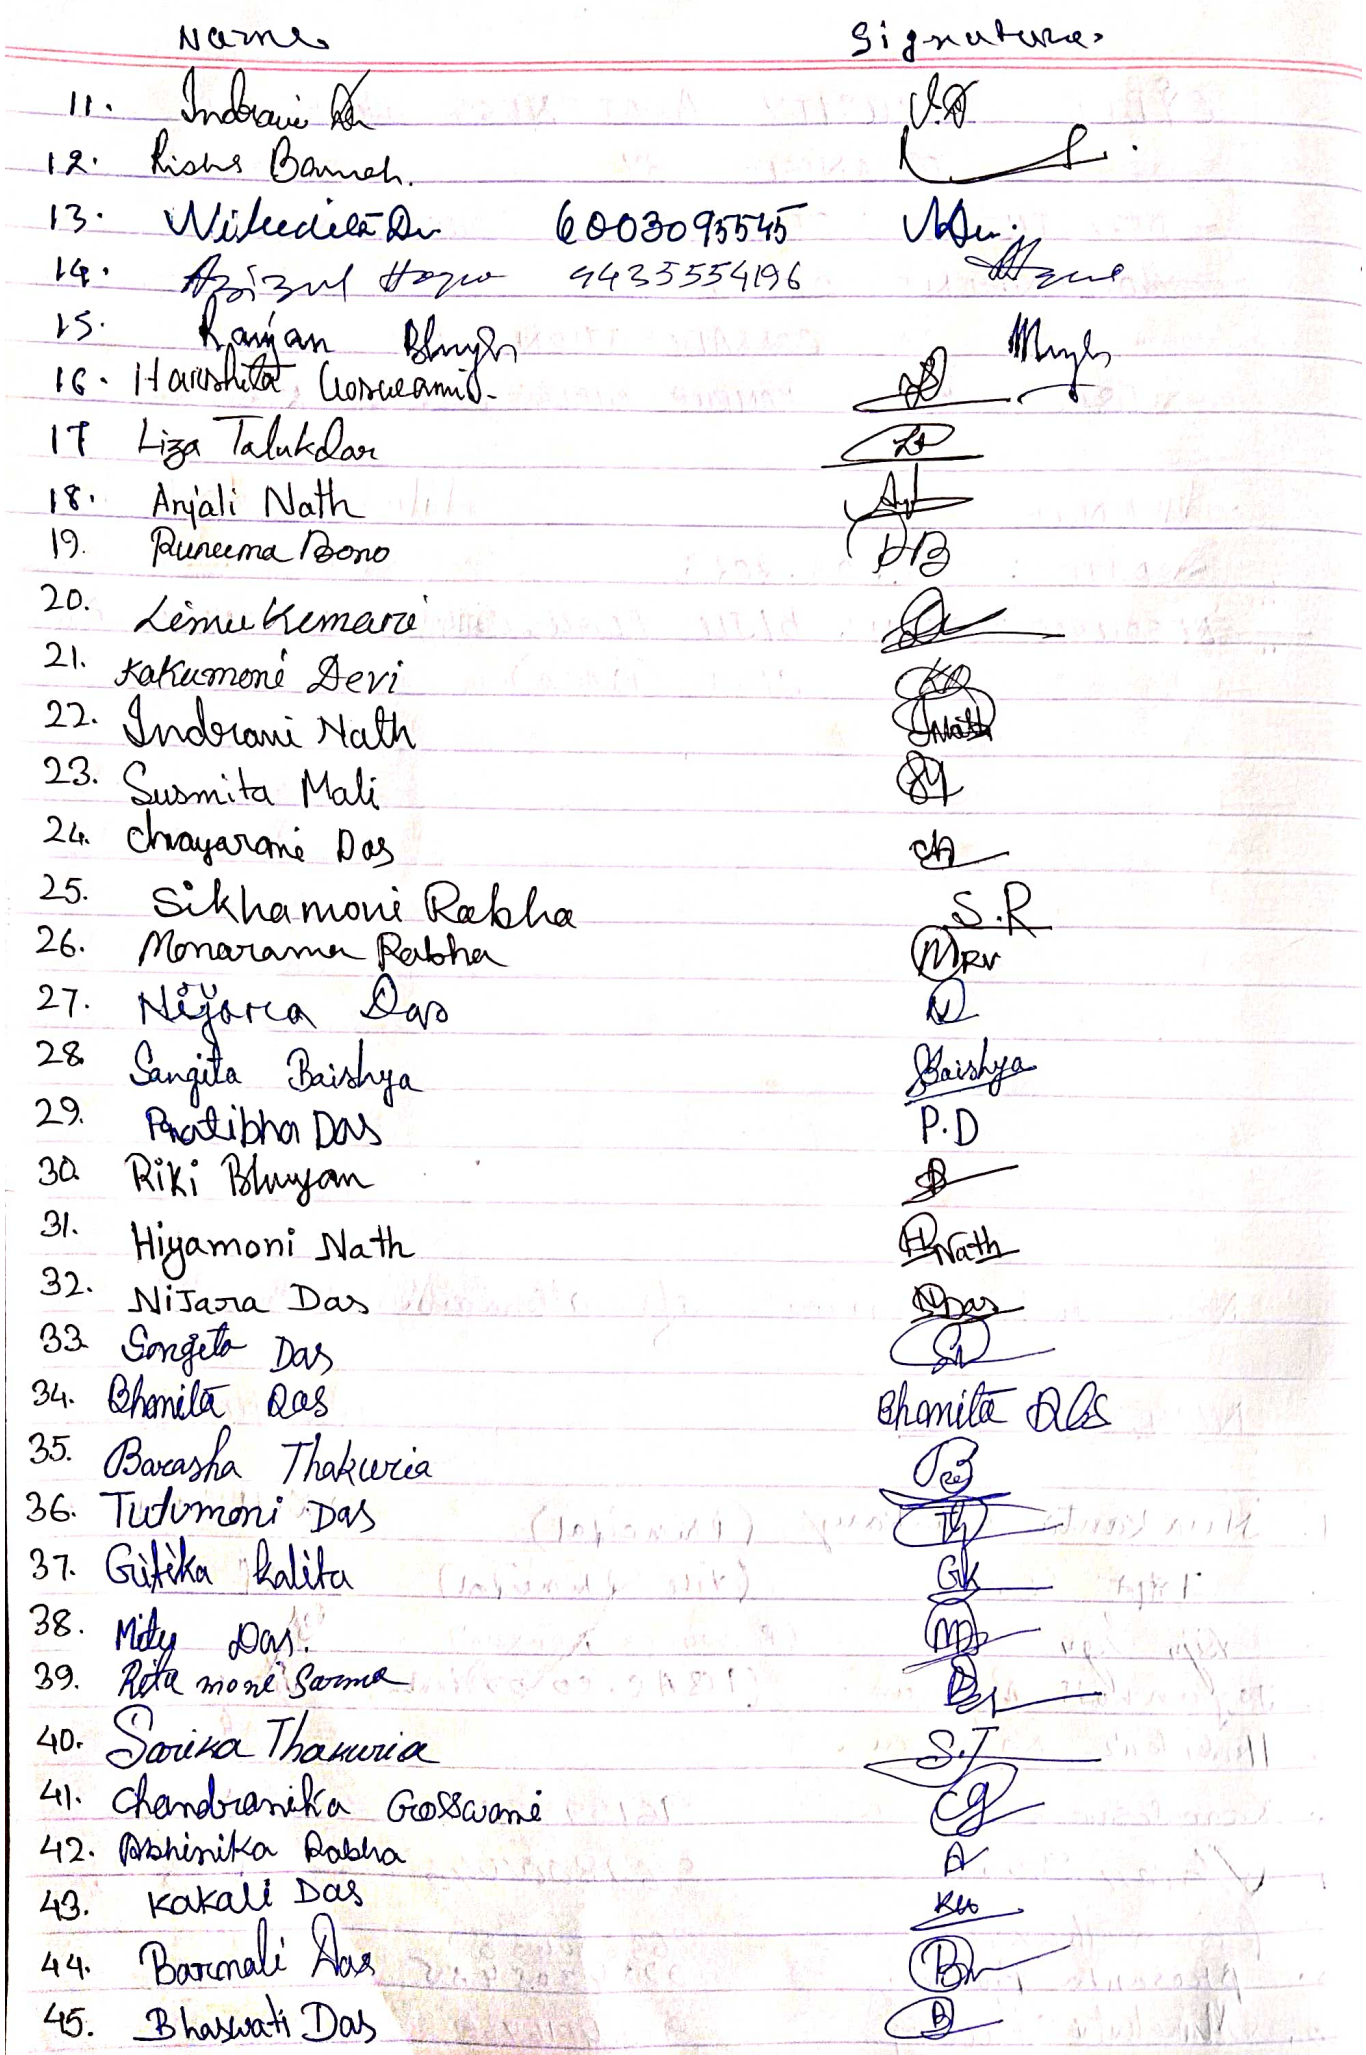 Name Signature
11. Indrani
12. Baruah.
13. 6003095545
14. Azizul 9435554196
15. Ranjan Bhuyan
16. Harshita Goswami
17 Liza Talukdar
18. Anjali Nath Anj
19. Puneema Boro PB
20. Limu Kumari
21. Kakumoni Devi KD
22. Indrani Nath INath
23. Susmita Mali SM
24. Chayarani Das
25. Sikhamoni Rabha S.R
26. Monarama Rabha
27. Nijara Das
28. Sangita Baishya SBaishya
29. Pratibha Das P.D
30. Riki Bhuyan
31. Hiyamoni Nath HNath
32. NiJara Das NDas
33. Songita Das SD
34. Bhanita Das Bhanita Das
35. Barasha Thakuria
36. Tutumoni Das
37. Gitika Kalita GK
38. Mity Das.
39. Rita moni Sarma
40. Sarika Thakuria S.T
41. Chandranika Gosswami CG
42. Abhinika Rabha A
43. Kakali Das
44. Barnali Das
45. Bhaswati Das B